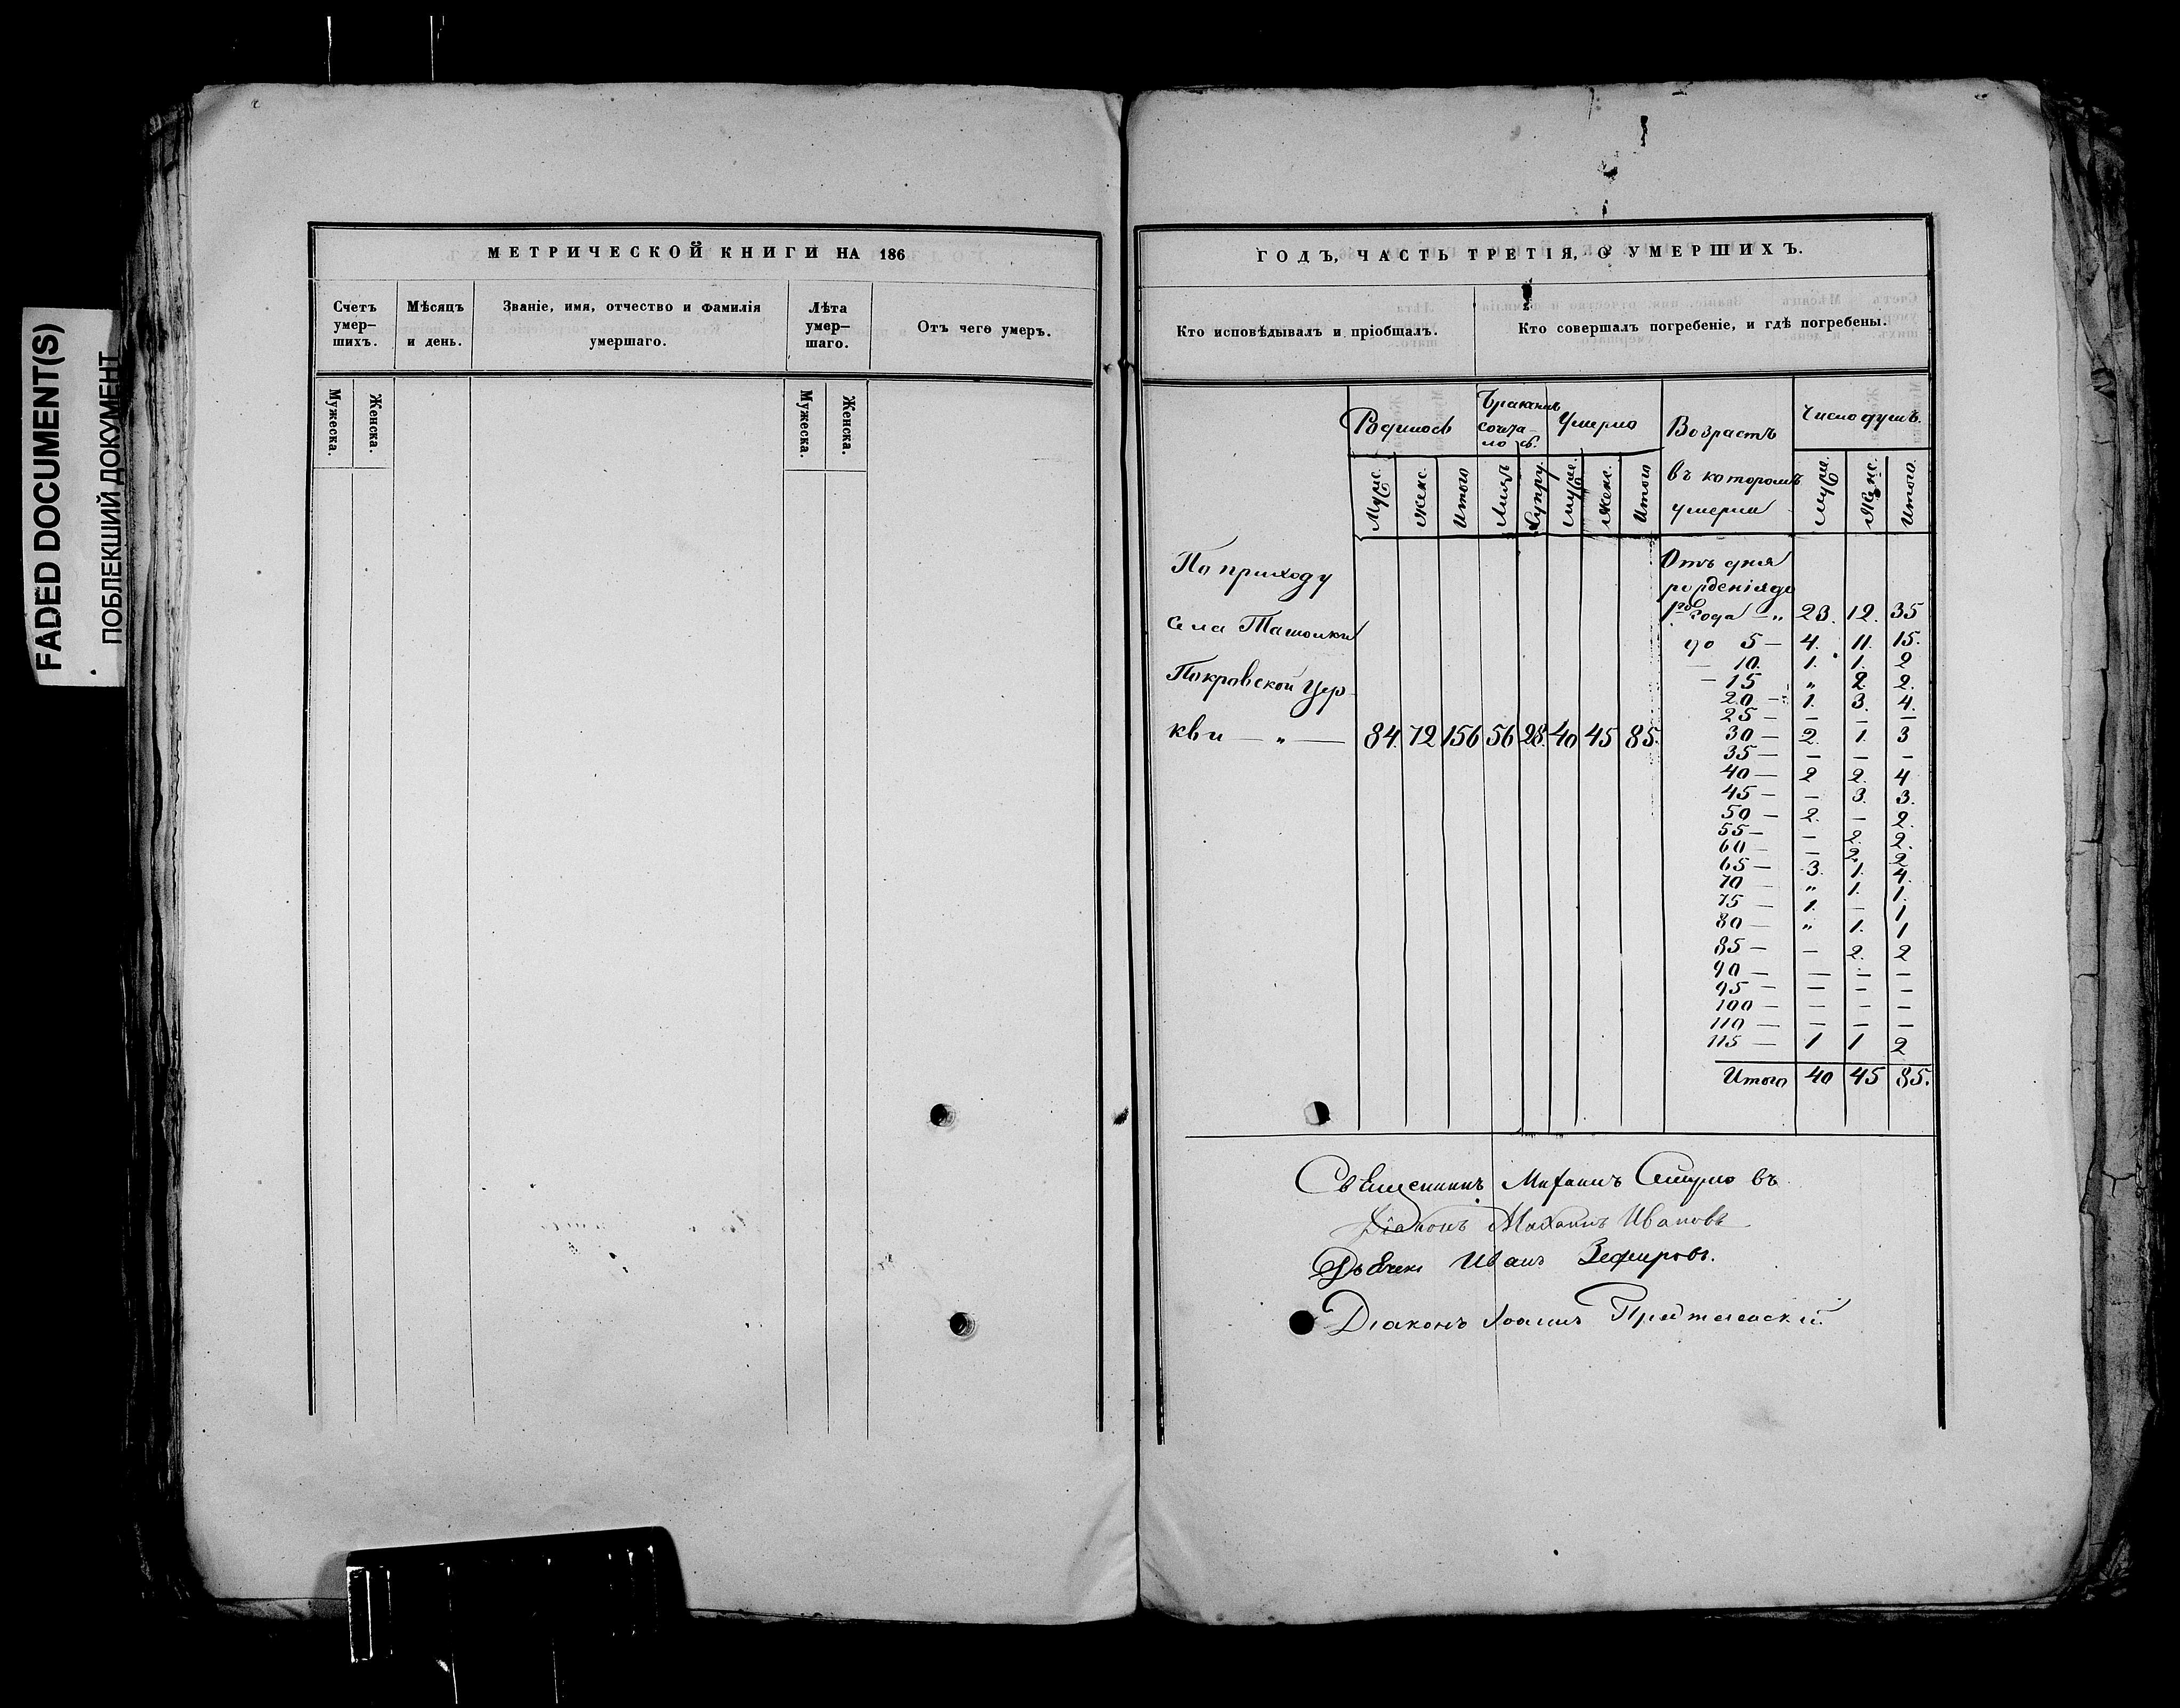 FADED DOCUMENT(S)
ПОБЛЕКШИЙ ДОКУМЕНТ
МЕТРИЧЕСКОЙ КНИГИ НА 186
Счетъ умер— шихъ.
Мѣсяцъ и день.
Званіе, имя, отчество и фамилія умершаго.
Лѣта умер— шаго.
Отъ чего умеръ.
Мужеска.
Женска.
Мужеска.
Женска.
ГОДЪ, ЧАСТЬ ТРЕТІЯ, О УМЕРШИХЪ.
Кто исповѣдывалъ и пріобщалъ.
Кто совершалъ погребеніе, и гдѣ погребены.
Родилось
Бракомъ сочта- лось.
Умерло
Возрастъ въ которомъ умерли
Число душъ.
Муж. Женс. Итого Лицъ Супру. Муж. Женс. Итого
Муж. Женс. Итого.
По приходу
села Ташолки
Покровской Цер-
кви — „ — 84. 72 156 56 28. 40 45 85.
Отъ дня
рожденія до
1го года — „ 23. 12. 35
до 5 — 4. 11. 15.
— 10. 1. 1. 2
— 15 „ 2. 2.
20 — 1. 3. 4.
25 — — — —
30 — 2. 1. 3
35 — — — —
40 — 2 2. 4
45 — — 3. 3.
50 — 2. — 2.
55 — — 2. 2.
60 — — 2. 2
65 — 3. 1. 4.
70 — „ 1. 1.
75 — 1. — 1
80 — „ 1. 1
85 — — 2. 2
90 — — — —
95 — — — —
100 — — — —
110 — — — —
115 — 1 1 2
Итого 40 45 85.
Священникъ Михаилъ
Діаконъ Михаилъ Ивановъ
Дьячекъ Иванъ Зефировъ.
Діаконъ Іоаннъ